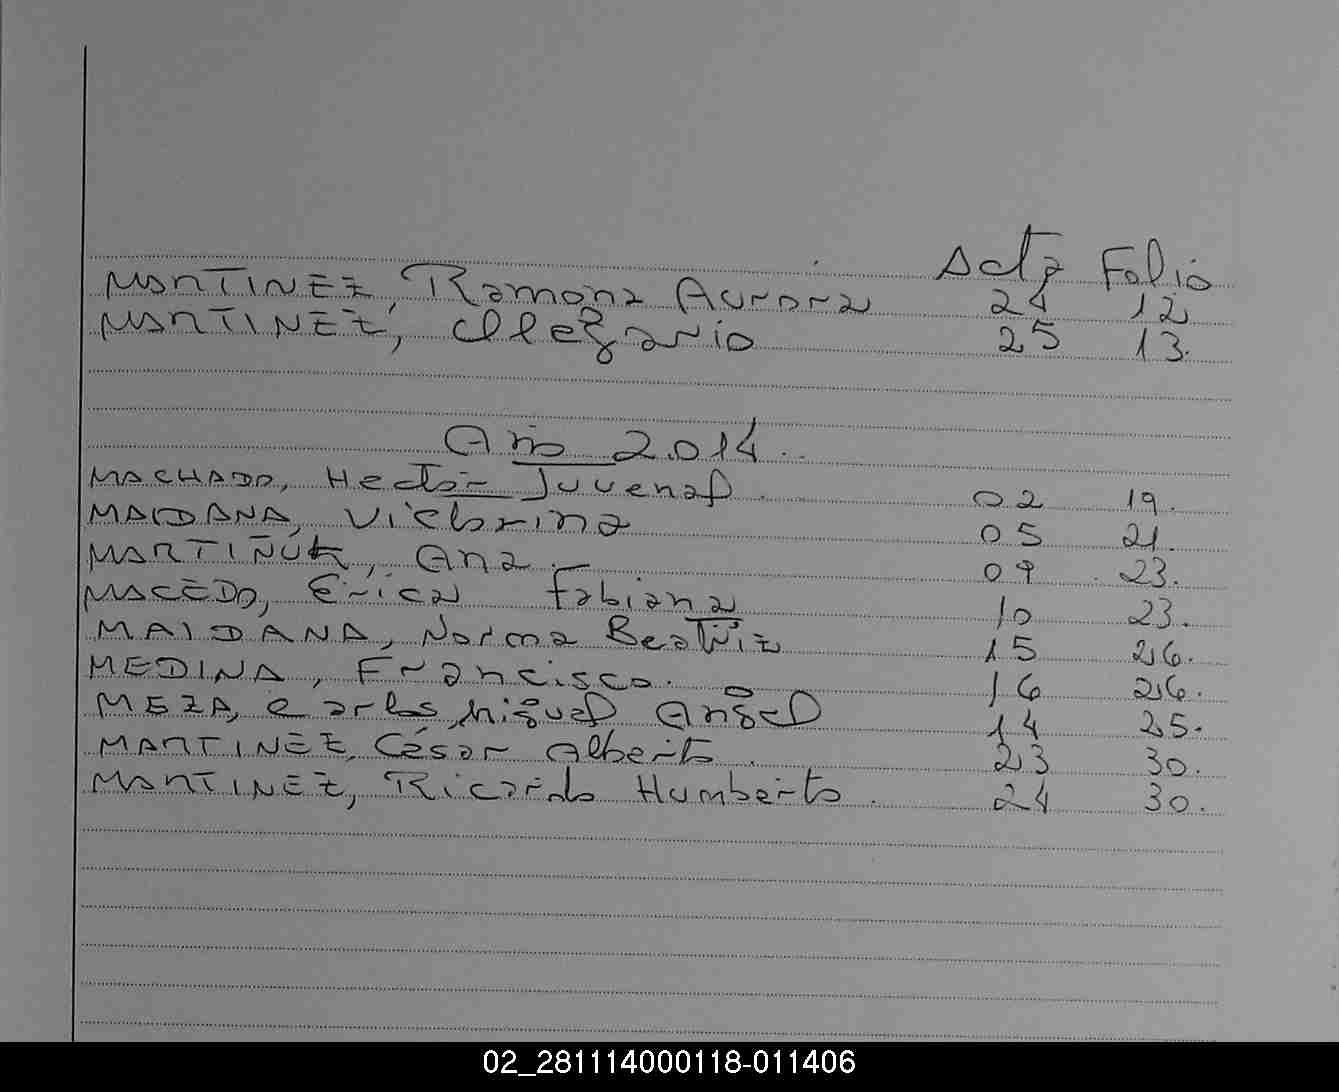 Acta Folio
MARTINEZ, Ramona Aurora 24 12
MARTINEZ, Olegario 25 13.
Año 2014.
MACHADO, Hector Juvenal. 02 19.
MAIDANA, Victorina 05 21.
Ana. 09 23.
MACEDO, Erica Fabiana 10 23.
MAIDANA, Norma Beatriz 15 26.
MEDINA, Francisco. 16 26.
MEZA, Carlos Miguel Angel 14 25.
MARTINEZ, César Alberto. 23 30.
MARTINEZ, Ricardo Humberto. 24 30.
02_281114000118-011406